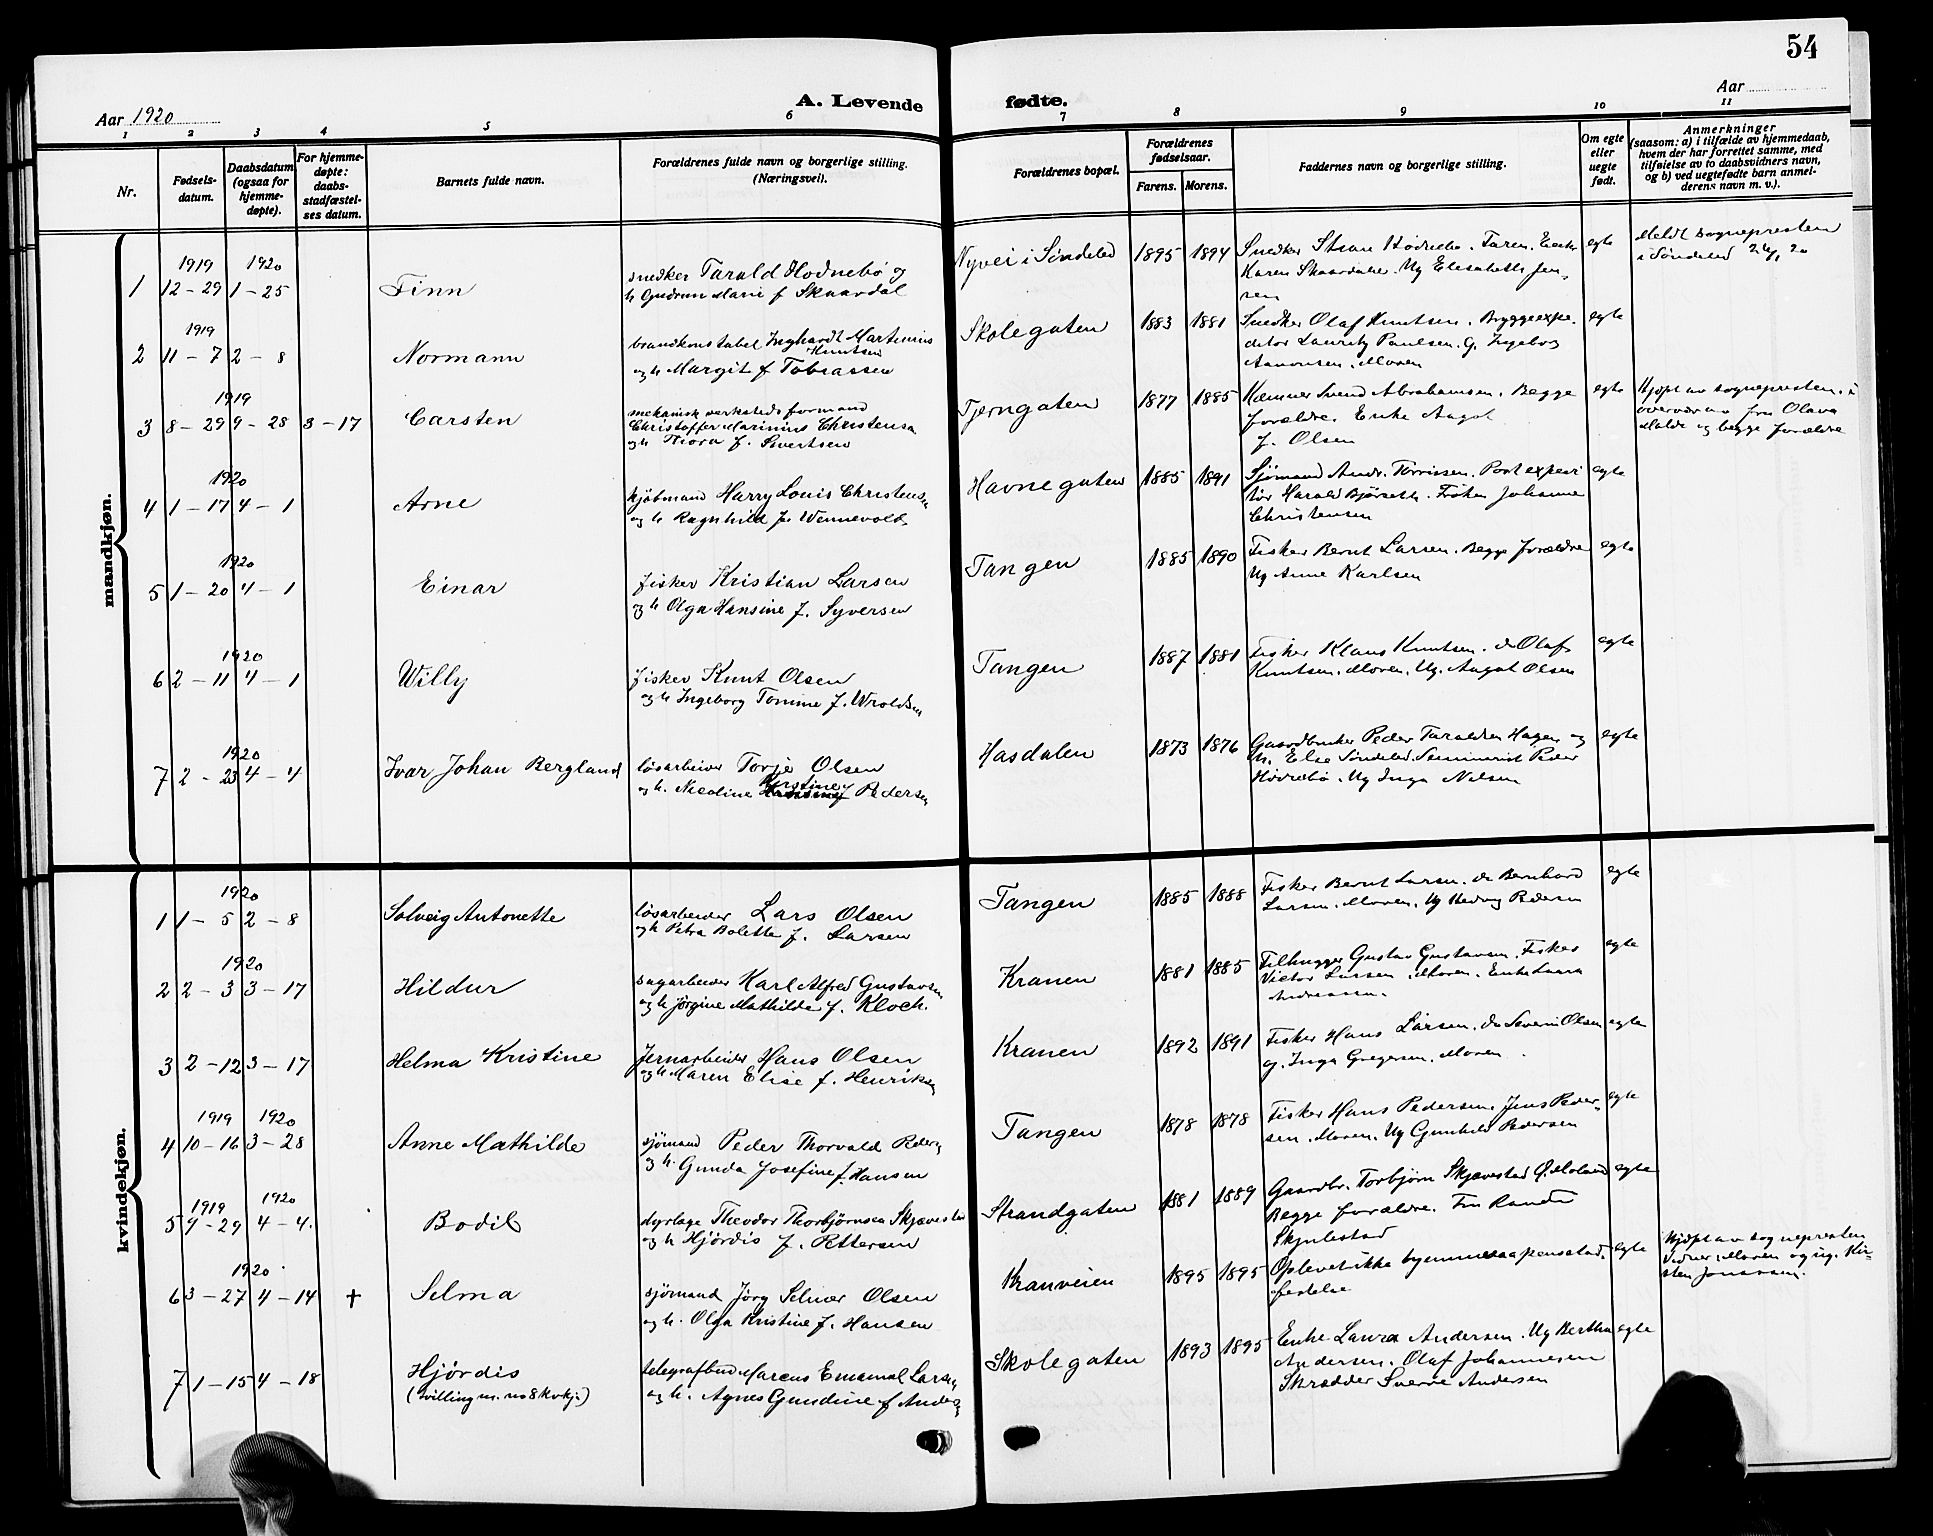 54
Aar 1920
A. Levende fødte.
Aar
1 2 3 4 5 6 7 8 9 10 11
Nr.
Fødsels-
datum.
Daabsdatum
(ogsaa for
hjemme-
døpte).
For hjemme-
døpte:
daabs-
stadfæstel-
ses datum.
Barnets fulde navn.
Forældrenes fulde navn og borgerlige stilling.
(Næringsvei).
Forældrenes bopæl.
Forældrenes
fødselsaar.
Farens. Morens.
Faddernes navn og borgerlige stilling.
Om egte
eller
uegte
født.
Anmerkninger
(saasom: a) i tilfælde av hjemmedaab,
hvem der har forrettet samme, med
tilføielse av to daabsvidners navn,
og b) ved uegtefødte barn anmel-
derens navn m. v.).
mandkjøn.
1919 1920
1 12-29 1-25 Finn
snedker Tarald Hodnebø og
h Gudrun Marie f Skaardal
Nyvei i Søndeled 1895 1894
Karen Skaardal. Ug Elisabeth Jen-
sen
egte
Meldt sognepresten
i Søndeled
1919
2 11-7 2-8 Normann
brandkonstabel Inghardt Martinius
Knutsen
og h Margit f Tobiassen
Skolegaten 1883 1881
Snedker Olaf Knutsen. Bryggeexpe-
ditør Lauritz Paulsen. G. Ingeborg
Aanonsen. Moren
egte
1919
3 8-29 9-28 3-17 Carsten
mekanisk verksteds formand
Christoffer Marinius Christensen
og h Thora f. Sivertsen
Tjerngaten 1877 1885
Kæmner Svend Abrahamsen. Begge
forældre. Enke Aagot
f. Olsen
egte
Hjdpt av sognepresten. i
overvær av fru Olava
Molde og begge forældre
1920
4 1-17 4-1 Arne
kjøbmand Harry Louis Christensen
og h Ragnhild f. Wennevold
Havnegaten 1885 1891
Sjømand Andr. Tørrissen. Postexpedi
tør Harald Bjørseth. Frøken Johanne
Christensen
egte
1920
5 1-20 4-1 Einar
fisker Kristian Larsen
og h Olga Hansine f. Syversen
Tangen 1885 1890
Fisker Bernt Larsen. Begge forældre
Ug Anne Karlsen
egte
1920
6 2-11 4-1 Willy
fisker Knut Olsen
og h Ingeborg Tomine f. Wroldsen
Tangen 1887 1881
Fisker Klaus Knutsen. do Olaf
Knutsen. Moren. Ug. Aagot Olsen
egte
1920
7 2-23 4-4 Ivar Johan Bergland
løsarbeider Torje Olsen
og h. Nicoline Kirstine f Pedersen
Hasdalen 1873 1876
Gaardbruker Peder Taraldsen Hagen og
h. Else Søndeled. Seminarist Peder
Hødnebø. Ug Inga Nilsen
egte
kvindekjøn.
1920
1 1-5 2-8 Solveig Antonette
løsarbeider Lars Olsen
og h Petra Bolette f. Larsen
Tangen 1885 1888
Fisker Bernt Larsen. do Bernhard
Larsen. Moren. Ug Hedvig Pedersen
egte
1920
2 2-3 3-17 Hildur
sagarbeider Karl Alfred Gustavsen
og h Jörgine Mathilde f. Kloch.
Kranen 1881 1885
Tilhugger Gustav Gustavsen. Fisker
Victor Larsen. Moren. Enke Laura
Andreassen.
egte
3 2-12 3-17 Helma Kristine
Jernarbeider Hans Olsen
og h Maren Elise f. Henriksen
Kranen 1892 1891
Fisker Hans Larsen. do Severin Olsen
g. Inga Gregersen. Moren.
egte
1919 1920
4 10-16 3-28 Anne Mathilde
sjømand Peder Thorvald Pedersen
og h. Gunda Josefine f. Hansen
Tangen 1878 1878
Fisker Hans Pedersen. Jens Peder-
sen. Moren. Ug Gunhild Pedersen
egte
1919 1920
5 9-29 4-4. Bodil
dyrlæge Theodor Thorbjørnsen Skjævestad
og h Hjördis f. Pettersen
Strandgaten 1881 1889
Gaardbr. Torbjørn Skjævestad
Begge forældre. Fru
egte
1920
6 3-27 4-14 † Selma
sjømand Jörg Selmer Olsen
og h. Olga Kristine f. Hansen
Kranveien 1895 1895
Oplevet ikke hjemmedaapens stad-
festelse
egte
Hjdpt av sognepresten
Vidner: Moren og ug. Kir-
sten Jonassen.
7 1-15 4-18 Hjördis
(tvilling m. no 8 kvkj.)
telegrafbud Marcus Emanuel Larsen
og h. Agnes Gundine f Andersen
Skolegaten 1893 1895
Enke Laura Andersen. Ug Bertha
Andersen. Olaf Johannesen
Skrædder Sverre Andersen
egte